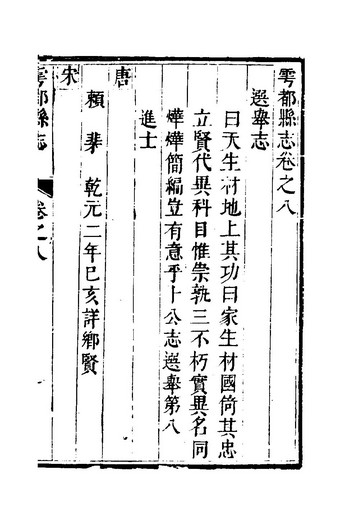 雩都縣志卷之八
選舉志
曰天生材地上其功曰家生材國倚其忠
立賢代異科目惟崇孰三不朽實異名同
燁燁簡編豈有意乎十公志選舉第八
進士
唐
賴棐乾元二年巳亥詳鄉賢
宋
雩都縣志
卷之八